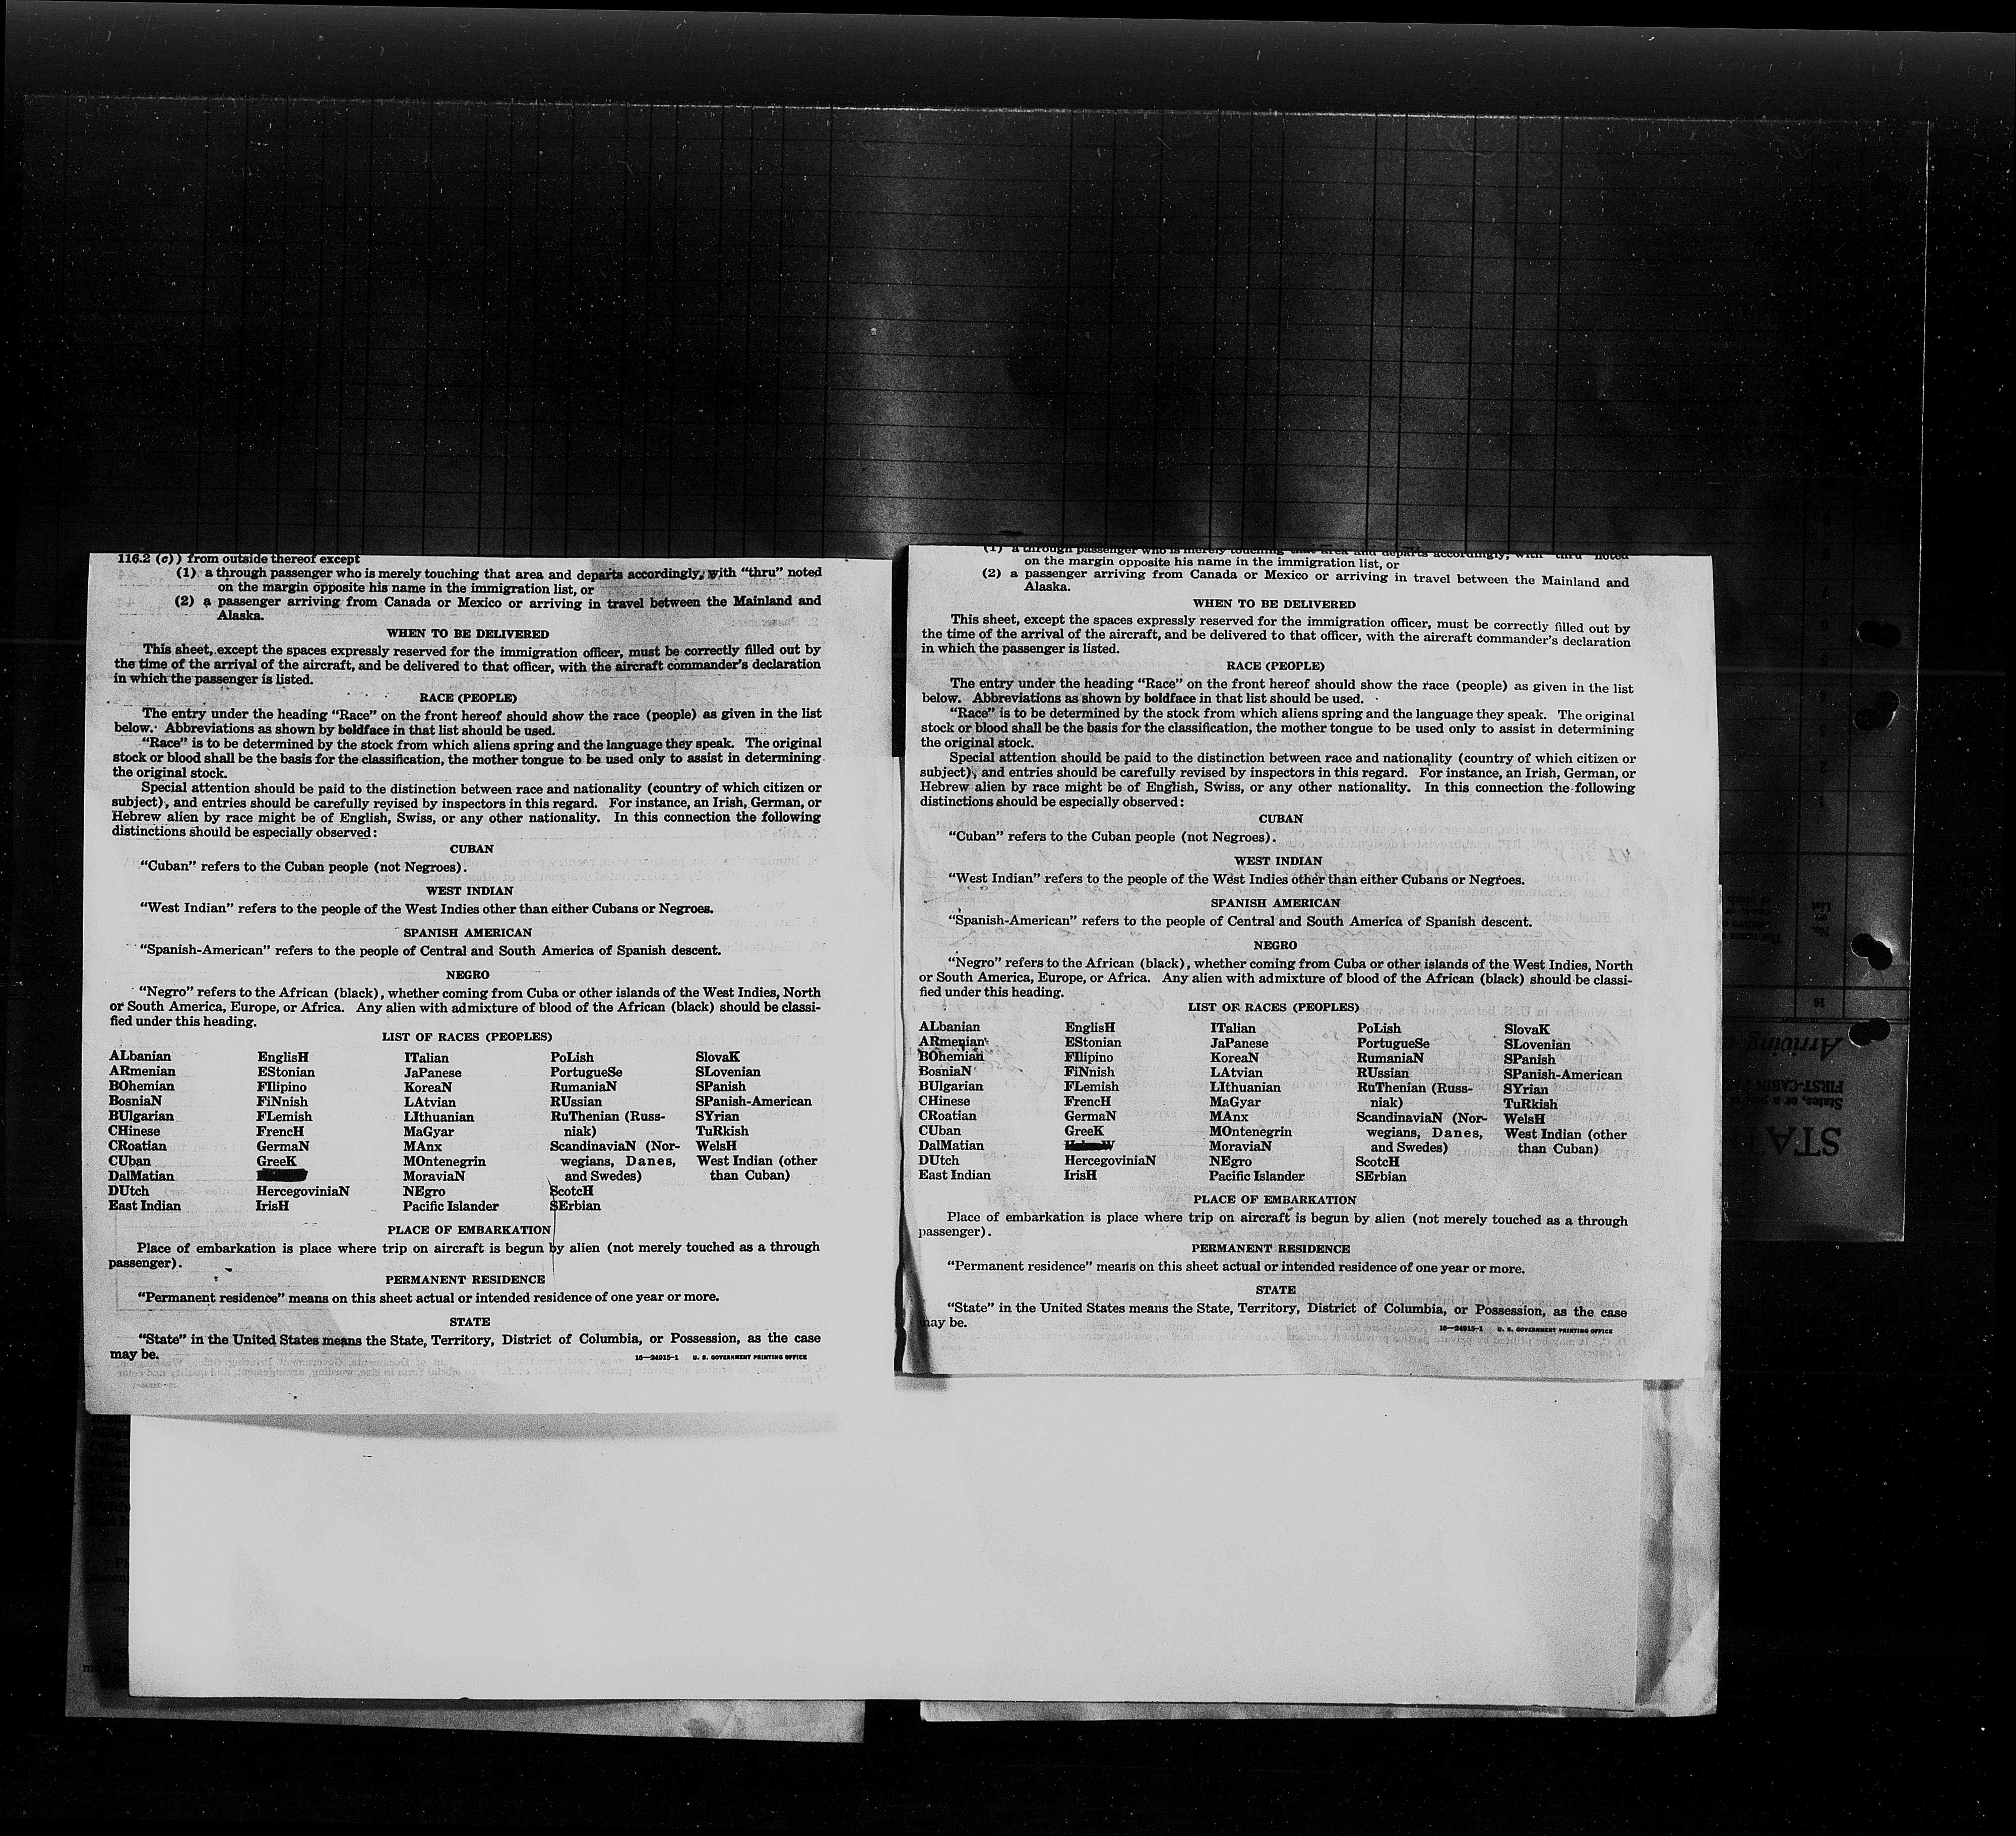 116.2 (c)) from outside thereof except
(1) a through passenger who is merely touching that area and departs accordingly, with “thru” noted
on the margin opposite his name in the immigration list, or
(2) a passenger arriving from Canada or Mexico or arriving in travel between the Mainland and
Alaska.
WHEN TO BE DELIVERED
This sheet, except the spaces expressly reserved for the immigration officer, must be correctly filled out by
the time of the arrival of the aircraft, and be delivered to that officer, with the aircraft commander’s declaration
in which the passenger is listed.
RACE (PEOPLE)
The entry under the heading “Race” on the front hereof should show the race (people) as given in the list
below. Abbreviations as shown by boldface in that list should be used.
“Race” is to be determined by the stock from which aliens spring and the language they speak. The original
stock or blood shall be the basis for the classification, the mother tongue to be used only to assist in determining
the original stock.
Special attention should be paid to the distinction between race and nationality (country of which citizen or
subject), and entries should be carefully revised by inspectors in this regard. For instance, an Irish, German, or
Hebrew alien by race might be of English, Swiss, or any other nationality. In this connection the following
distinctions should be especially observed:
CUBAN
“Cuban” refers to the Cuban people (not Negroes).
WEST INDIAN
“West Indian” refers to the people of the West Indies other than either Cubans or Negroes.
SPANISH AMERICAN
“Spanish-American” refers to the people of Central and South America of Spanish descent.
NEGRO
“Negro” refers to the African (black), whether coming from Cuba or other islands of the West Indies, North
or South America, Europe, or Africa. Any alien with admixture of blood of the African (black) should be classi-
fied under this heading.
LIST OF RACES (PEOPLES)
ALbanian
ARmenian
BOhemian
BosniaN
BUlgarian
CHinese
CRoatian
CUban
DalMatian
DUtch
East Indian
EnglisH
EStonian
FIlipino
FiNnish
FLemish
FrencH
GermaN
GreeK
HercegoviniaN
IrisH
ITalian
JaPanese
KoreaN
LAtvian
LIthuanian
MaGyar
MAnx
MOntenegrin
MoraviaN
NEgro
Pacific Islander
PoLish
PortugueSe
RumaniaN
RUssian
RuThenian (Russ-
niak)
ScandinaviaN (Nor-
wegians, Danes,
and Swedes)
ScotcH
SErbian
SlovaK
SLovenian
SPanish
SPanish-American
SYrian
TuRkish
WelsH
West Indian (other
than Cuban)
PLACE OF EMBARKATION
Place of embarkation is place where trip on aircraft is begun by alien (not merely touched as a through
passenger).
PERMANENT RESIDENCE
“Permanent residence” means on this sheet actual or intended residence of one year or more.
STATE
“State” in the United States means the State, Territory, District of Columbia, or Possession, as the case
may be.
16—24915-1 U. S. GOVERNMENT PRINTING OFFICE
(1) a through passenger who is merely touching that area and departs accordingly, with “thru” noted
on the margin opposite his name in the immigration list, or
(2) a passenger arriving from Canada or Mexico or arriving in travel between the Mainland and
Alaska.
WHEN TO BE DELIVERED
This sheet, except the spaces expressly reserved for the immigration officer, must be correctly filled out by
the time of the arrival of the aircraft, and be delivered to that officer, with the aircraft commander’s declaration
in which the passenger is listed.
RACE (PEOPLE)
The entry under the heading “Race” on the front hereof should show the race (people) as given in the list
below. Abbreviations as shown by boldface in that list should be used.
“Race” is to be determined by the stock from which aliens spring and the language they speak. The original
stock or blood shall be the basis for the classification, the mother tongue to be used only to assist in determining
the original stock.
Special attention should be paid to the distinction between race and nationality (country of which citizen or
subject), and entries should be carefully revised by inspectors in this regard. For instance, an Irish, German, or
Hebrew alien by race might be of English, Swiss, or any other nationality. In this connection the following
distinctions should be especially observed:
CUBAN
“Cuban” refers to the Cuban people (not Negroes).
WEST INDIAN
“West Indian” refers to the people of the West Indies other than either Cubans or Negroes.
SPANISH AMERICAN
“Spanish-American” refers to the people of Central and South America of Spanish descent.
NEGRO
“Negro” refers to the African (black), whether coming from Cuba or other islands of the West Indies, North
or South America, Europe, or Africa. Any alien with admixture of blood of the African (black) should be classi-
fied under this heading.
LIST OF RACES (PEOPLES)
ALbanian
ARmenian
BOhemian
BosniaN
BUlgarian
CHinese
CRoatian
CUban
DalMatian
DUtch
East Indian
EnglisH
EStonian
FIlipino
FiNnish
FLemish
FrencH
GermaN
GreeK
HebreW
HercegoviniaN
IrisH
ITalian
JaPanese
KoreaN
LAtvian
LIthuanian
MaGyar
MAnx
MOntenegrin
MoraviaN
NEgro
Pacific Islander
PoLish
PortugueSe
RumaniaN
RUssian
RuThenian (Russ-
niak)
ScandinaviaN (Nor-
wegians, Danes,
and Swedes)
ScotcH
SErbian
SlovaK
SLovenian
SPanish
SPanish-American
SYrian
TuRkish
WelsH
West Indian (other
than Cuban)
PLACE OF EMBARKATION
Place of embarkation is place where trip on aircraft is begun by alien (not merely touched as a through
passenger).
PERMANENT RESIDENCE
“Permanent residence” means on this sheet actual or intended residence of one year or more.
STATE
“State” in the United States means the State, Territory, District of Columbia, or Possession, as the case
may be.
16—24915-1 U. S. GOVERNMENT PRINTING OFFICE
Arriving
FIRST-CABIN
STA